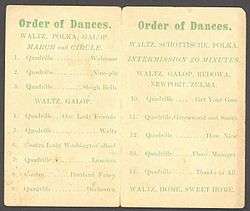 Order of Dances.
WALTZ, POLKA, GALOP,
MARCH and CIRCLE.
1. Quadrille Welcome
2. Quadrille Nine-pin
3. Quadrille Sleigh Bells
WALTZ, GALOP.
4. Quadrille Our Lady Friends
5. Quadrille Waltz
6. Contra
7. Quadrille Lanciers
8. Portland Fancy
9. Quadrille
Order of Dances.
WALTZ, SCHOTTISCHE, POLKA.
INTERMISSION 20 MINUTES.
WALTZ, GALOP, REDOWA,
NEWPORT, ZULMA.
10. Quadrille Get Your Coat
11. Quadrille,
12. Quadrille
13. Quadrille Floor Manager
14. Quadrille Thanks to All
WALTZ, HOME, SWEET HOME.